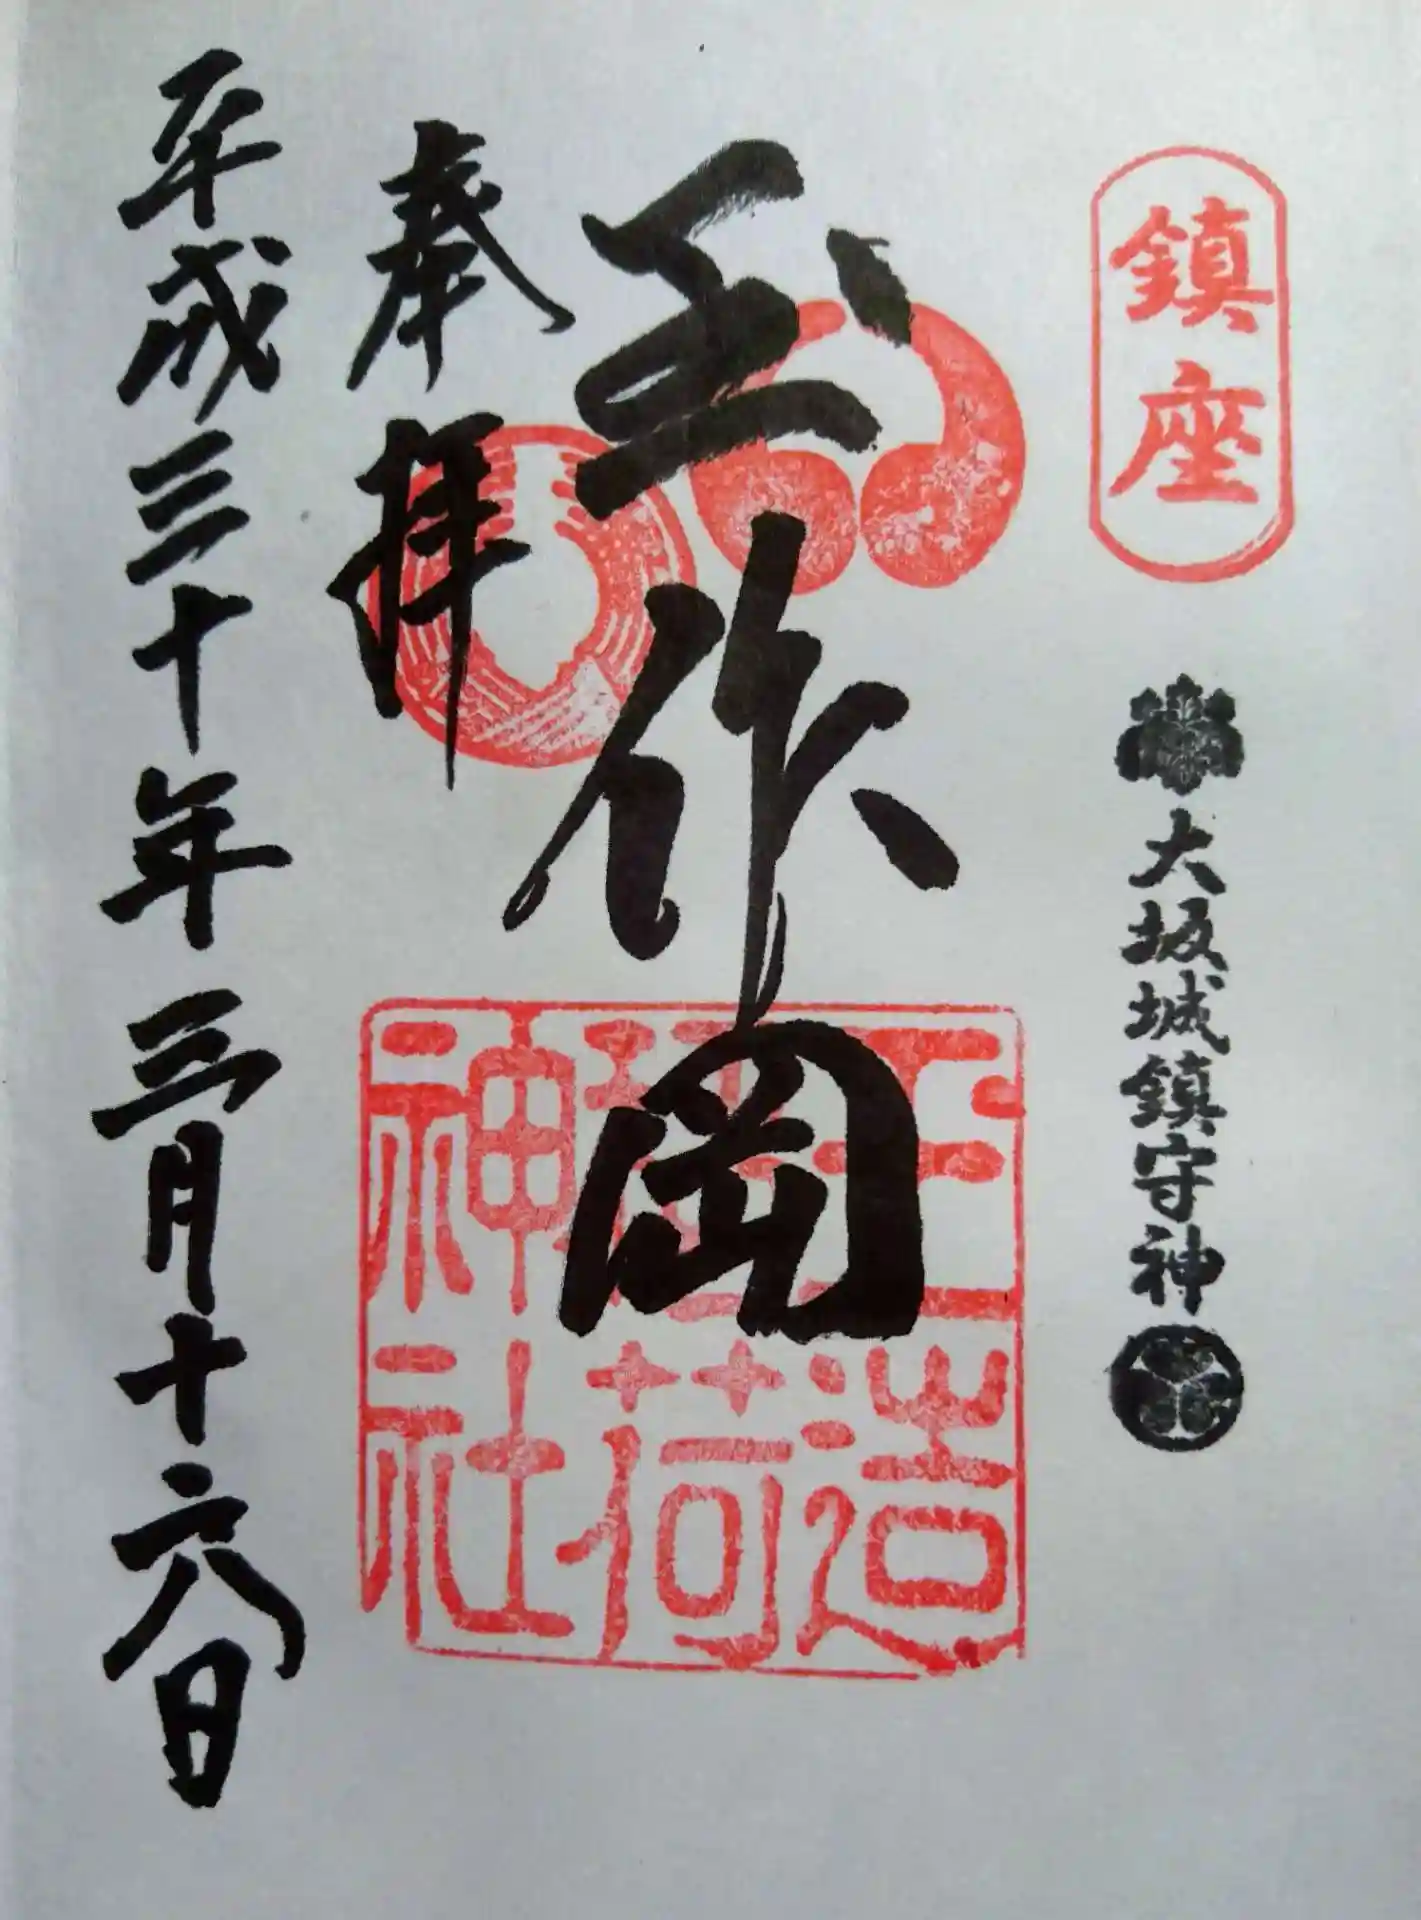 鎮座
大坂城鎮守神
玉作岡
玉造
稲荷
神社
奉拝
平成三十年三月十六日